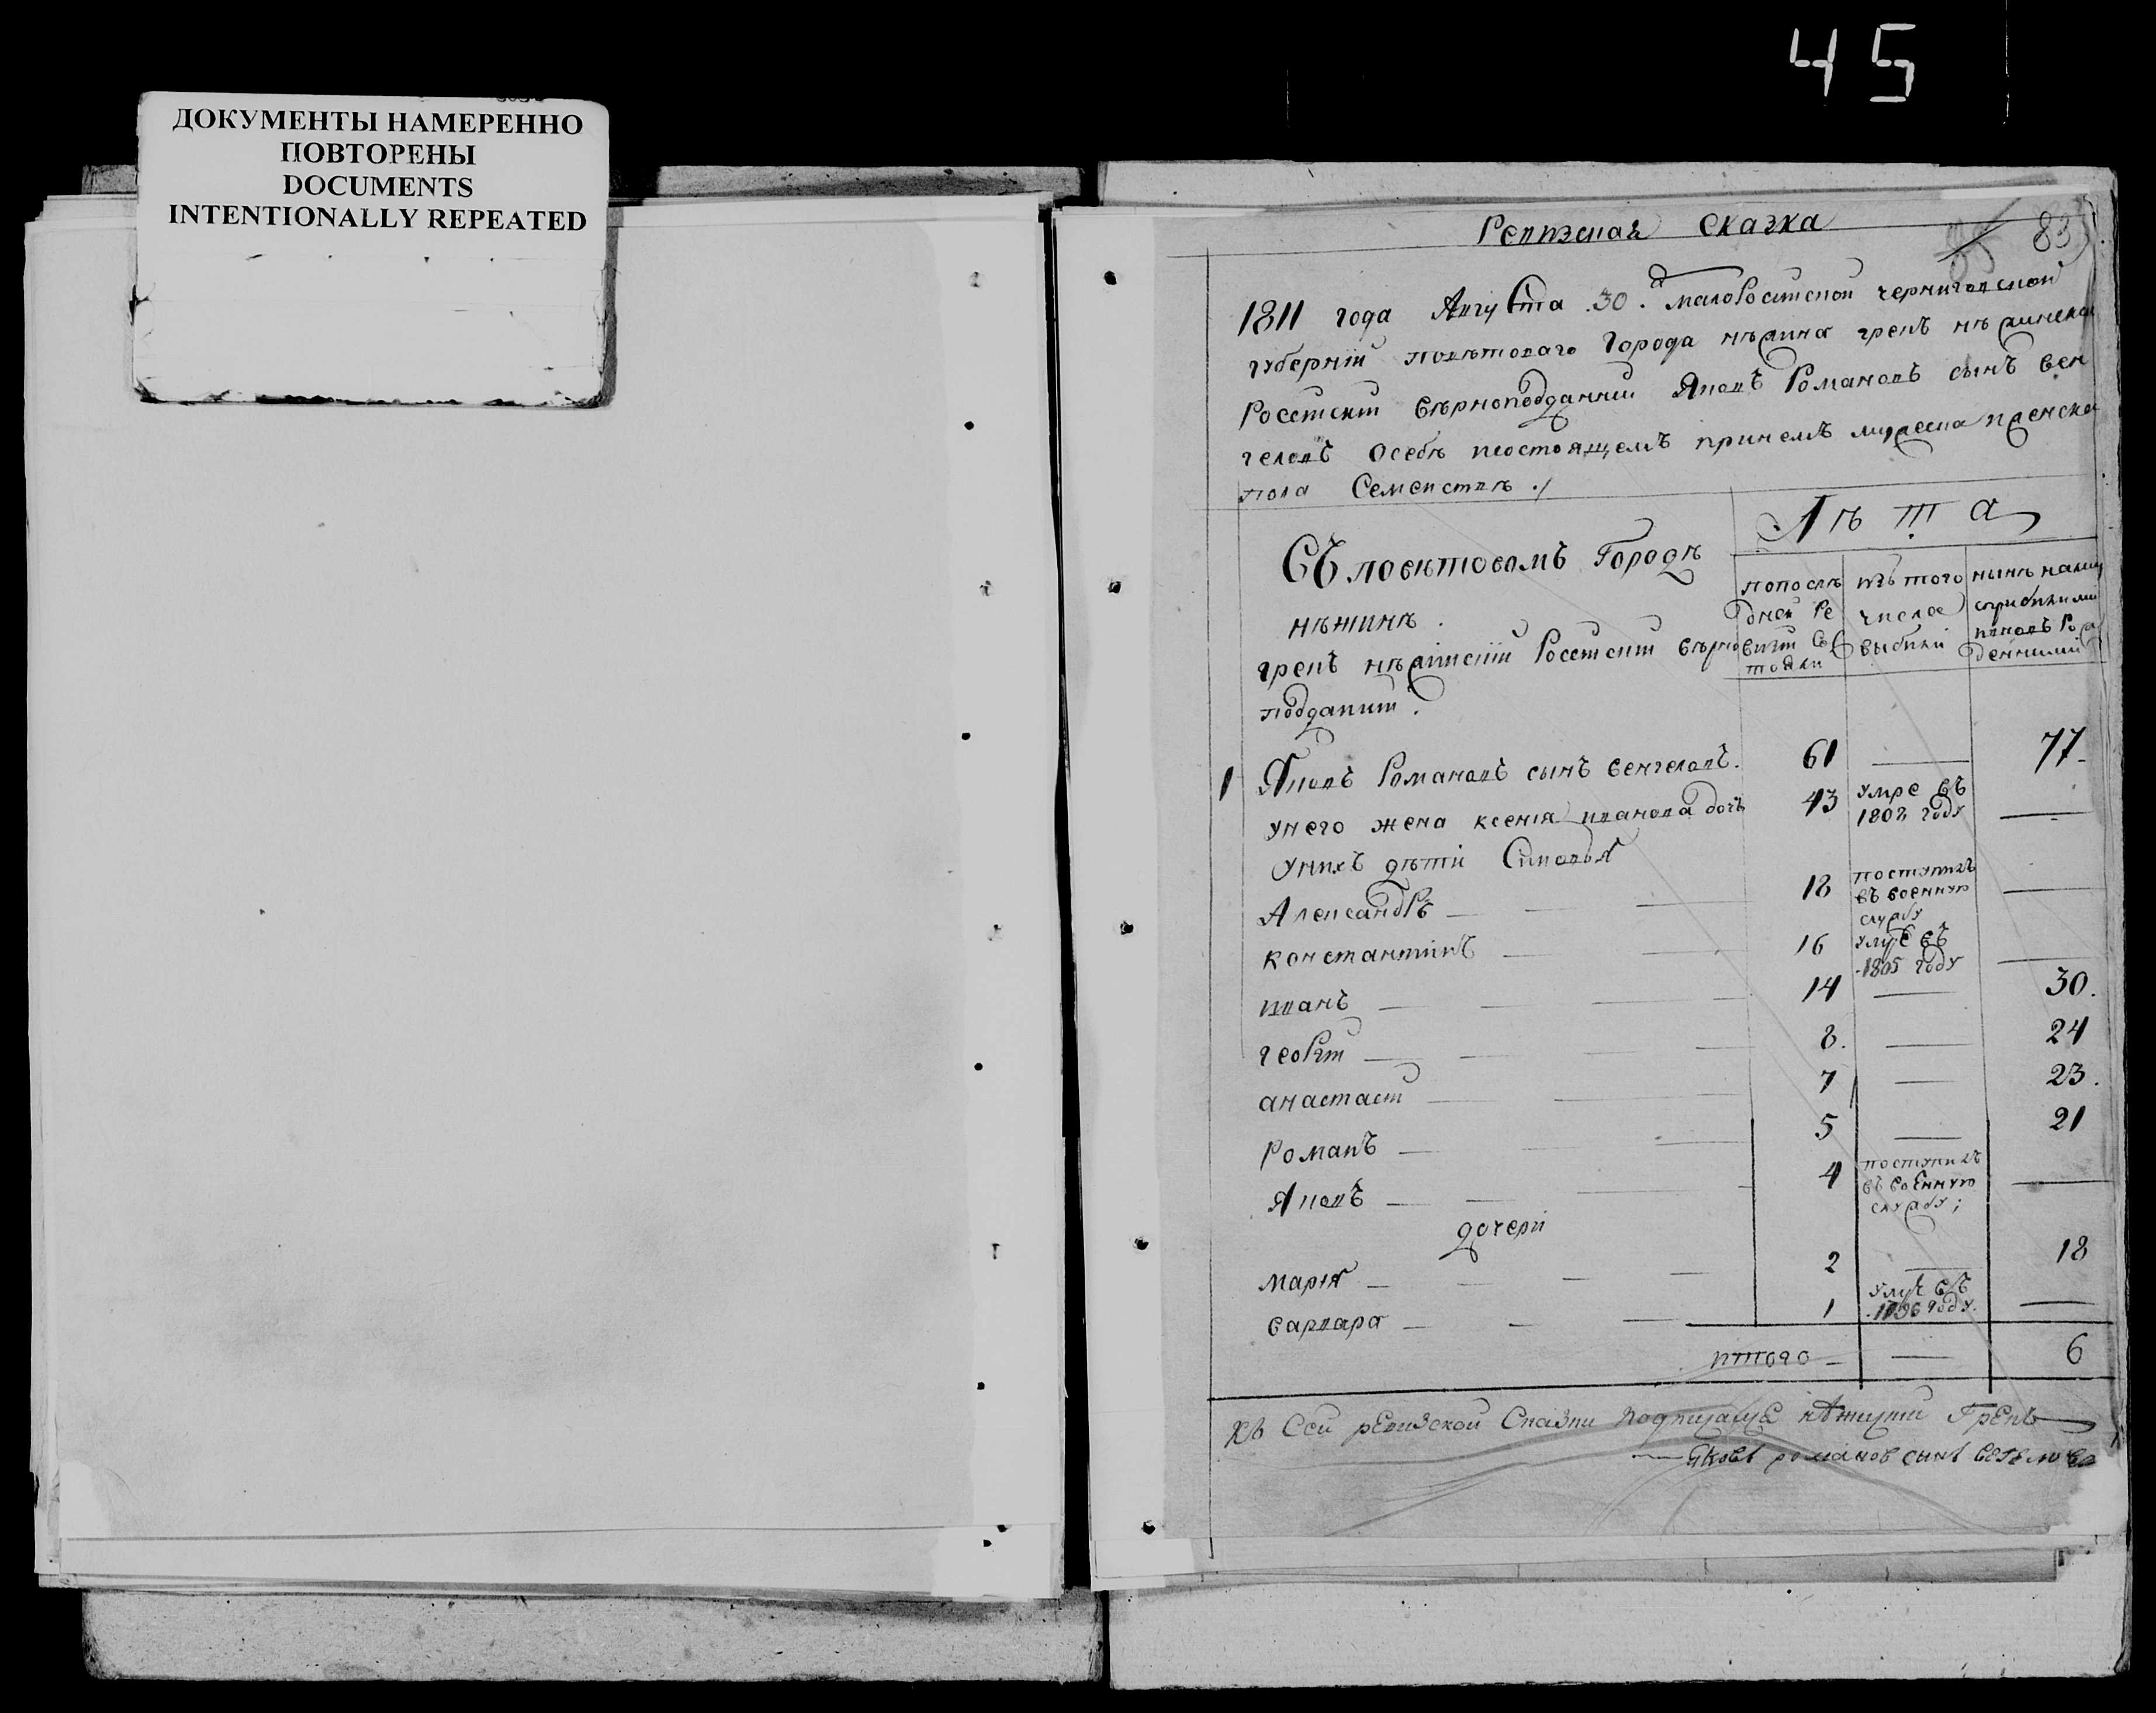 45
ДОКУМЕНТЫ НАМЕРЕННО
ПОВТОРЕНЫ
DOCUMENTS
INTENTIONALLY REPEATED
Ревизская Сказка
83
1811 года Августа 30. Малороссиской черниговской
губернiи поветоваго Города нѣжина грекъ нѣжински
Россiискiй вѣрноподданнiй Яковъ Романовъ сынъ вен
геловъ Осебѣ исостоящемъ принемъ мужеска иженска
пола Семействѣ ./
Лѣта
Въ поветовомъ Городѣ
нѣжинѣ .
грекъ нѣжинскiй Россiискiй вѣрно
подданiй .
попослѣ
дней Ре
визiи Со
тояли
изъ того
числа
выбыли
нынѣ налицо
сприбылими
ивновь Рож
денними
1 Яковъ Романовъ сынъ венгеловъ. 61 — 77
унего жена ксенiя иванова дочь 43 умре въ 1802 году —
Унихъ дѣти Синовья
Александръ — — — 18 поступилъ въ военную службу —
константинъ — — 16 умре въ 1805 году —
иванъ — — — — 14 — 30.
георгiй — — — — 8. — 24
анастасiй — — 7 — 23.
Романъ — — — 5 — 21
Яковъ — — — 4 поступилъ въ военную службу ; —
дочери
марiя — — — — 2 — 18
варвара — — — 1 умре въ 1796 году. —
итого — — 6
Къ Сей ревизской Сказки подписался нѣжинский Грекъ
— Яковъ романов сынъ